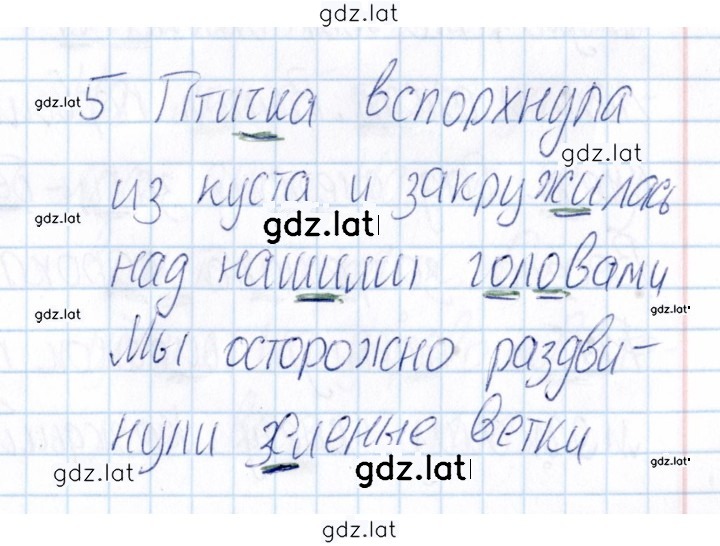 gdz.lat
gdz.lat 5 Птичка вспорхнула
gdz.lat
из куста и закружилась
gdz.lat gdz.lat
над нашими головами
gdz.lat gdz.lat
Мы осторожно раздви-
нули зеленые ветки
gdz.lat gdz.lat gdz.lat
gdz.lat